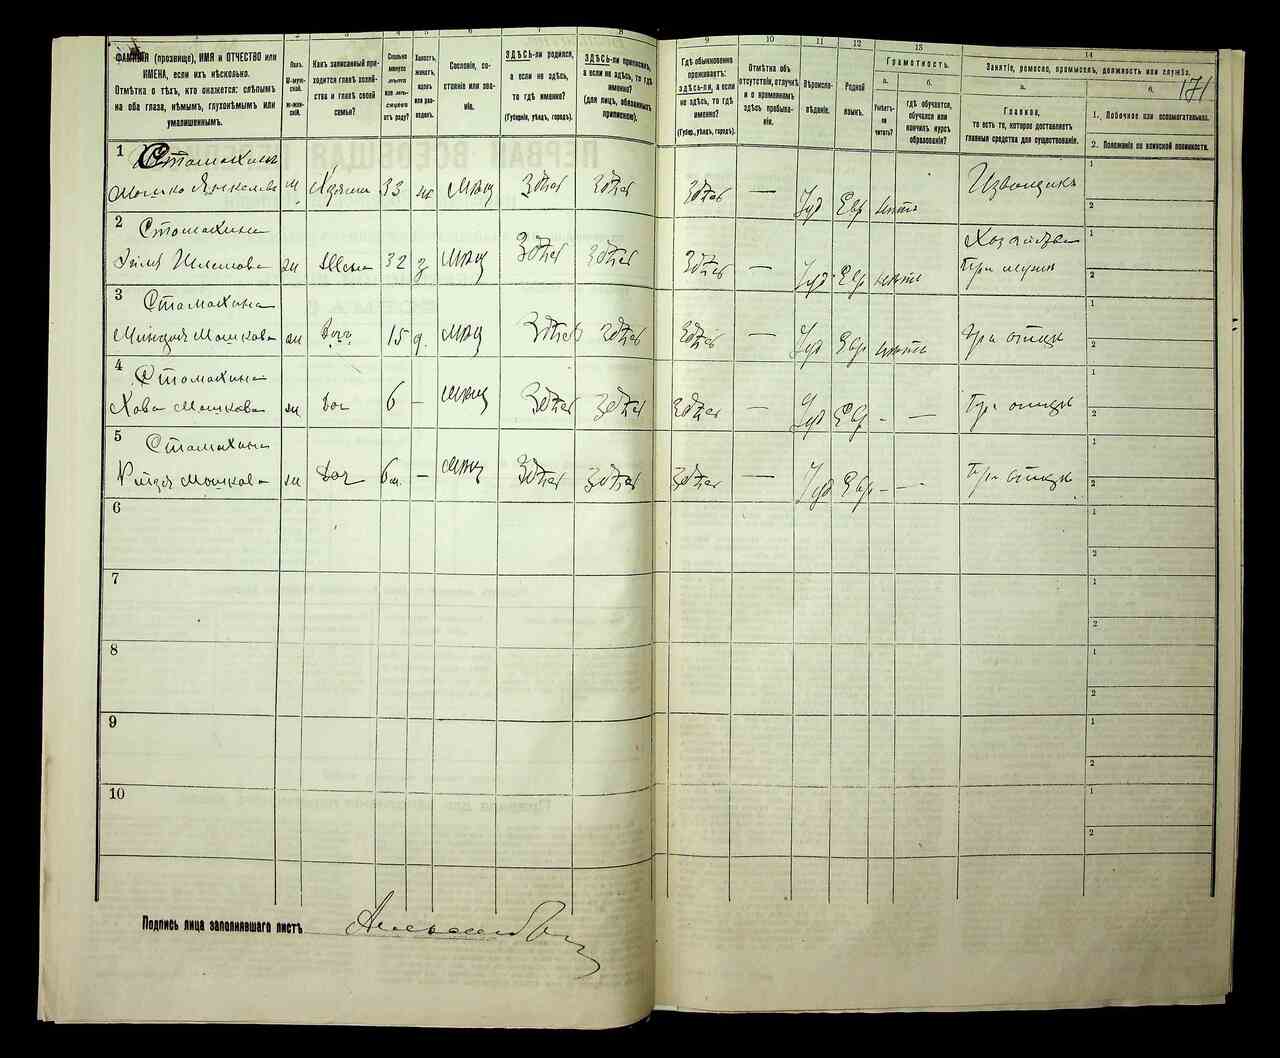 171
ФАМИЛІЯ (прозвище), ИМЯ и ОТЧЕСТВО или
ИМЕНА, если ихъ нѣсколько.
Отмѣтка о тѣхъ, кто окажется: слѣпымъ
на оба глаза, нѣмымъ, глухонѣмымъ или
умалишеннымъ.
Полъ.
М-муж-
ской.
Ж-жен-
скій.
Какъ записанный при-
ходится главѣ хозяй-
ства и главѣ своей
семьи?
Сколько
минуло
лѣтъ
или мѣ-
сяцевъ
отъ роду?
Холостъ,
женатъ,
вдовъ
или раз-
веденъ.
Сословіе, со-
стояніе или зва-
ніе.
ЗДѢСЬ-ли родился,
а если не здѣсь,
то гдѣ именно?
(Губернія, уѣздъ, городъ).
ЗДѢСЬ-ли приписанъ,
а если не здѣсь, то гдѣ
именно?
(для лицъ, обязанныхъ
припискою).
Гдѣ обыкновенно
проживаетъ:
здѣсь-ли, а если
не здѣсь, то гдѣ
именно?
(Губерн., уѣздъ, городъ).
Отмѣтка объ
отсутствіи, отлучкѣ
и о временномъ
здѣсь пребыва-
ніи.
Вѣроиспо-
вѣданіе.
Родной
языкъ.
Грамотность.
а.
Умѣетъ-
ли
читать?
б.
гдѣ обучается,
обучался или
кончилъ курсъ
образованія?
Занятіе, ремесло, промыселъ, должность или служба.
а.
Главное,
то есть то, которое доставляетъ
главныя средства для существованія.
б.
1. Побочное или вспомогательное.
2. Положеніе по воинской повинности.
1 Стомахинъ
Мошко Янкелевъ м Хозяинъ 33 ж мѣщ здѣсь здѣсь здѣсь — Іуд Евр нѣтъ Извощикъ
2 Стомахина
Шлемова ж Жена 32 з мѣщ здѣсь здѣсь здѣсь — Іуд Евр нѣтъ Хозяйка
При мужѣ
3 Стомахина
Мошкова ж Доч 15 д. мѣщ здѣсь здѣсь здѣсь — Іуд Евр нѣтъ При отцѣ
4 Стомахина
Хава Мошкова ж Доч 6 — мѣщ здѣсь здѣсь здѣсь — Іуд Евр - — При отцѣ
5 Стомахина
Мошкова ж Доч 6 м. — мѣщ здѣсь здѣсь здѣсь — Іуд Евр - — При отцѣ
6
7
8
9
10
Подпись лица заполнявшаго листъ